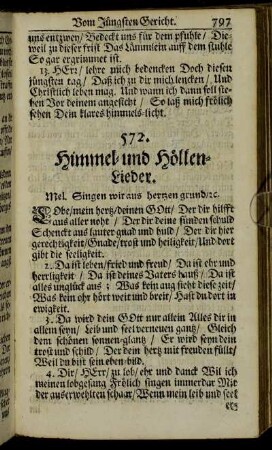 Vom Jüngsten Gericht. 797
uns entzwey/ Bedeckt uns für dem pfuhle/ Die-
weil zu dieser frist Das Lämmlein auff dem stuhle
So gar ergrimmet ist.
13. HErr/ lehre mich bedencken Doch diesen
jüngsten tag/ Daß ich zu dir mich lencken/ Und
Christlich leben mag. Und wann ich dann soll ste-
hen Vor deinem angesicht/ So laß mich frölich
sehen Dein klares himmels-licht.
572.
Himmel- und Höllen-
Lieder.
Mel. Singen wir aus hertzen grund/ ꝛc.
LObe/ mein hertz/ deinen GOtt/ Der dir hilfft
aus aller noht/ Der dir deine sünden schuld
Schenckt aus lauter gnad und huld/ Der dir hier
gerechtigkeit/ Gnade/ trost und heiligkeit/ Und dort
gibt die seeligkeit.
2. Da ist leben/ fried und freud/ Da ist ehr und
herrligkeit/ Da ist deines Vaters hauß/ Da ist
alles unglück aus; Was kein aug sieht diese zeit/
Was kein ohr hört weit und breit/ Hast du dort in
ewigkeit.
3. Da wird dein GOtt nur allein Alles dir in
allem seyn/ Leib und seel verneuen gantz/ Gleich
dem schönen sonnen-glantz/ Er wird seyn dein
trost und schild/ Der dem hertz mit freuden füllt/
Weil du bist sein eben-bild.
4. Dir/ HErr/ zu lob/ ehr und danck Wil ich
meinen lobgesang Frölich singen immerdar Mit
der auserwehlten schaar/ Wenn mein leib und seel